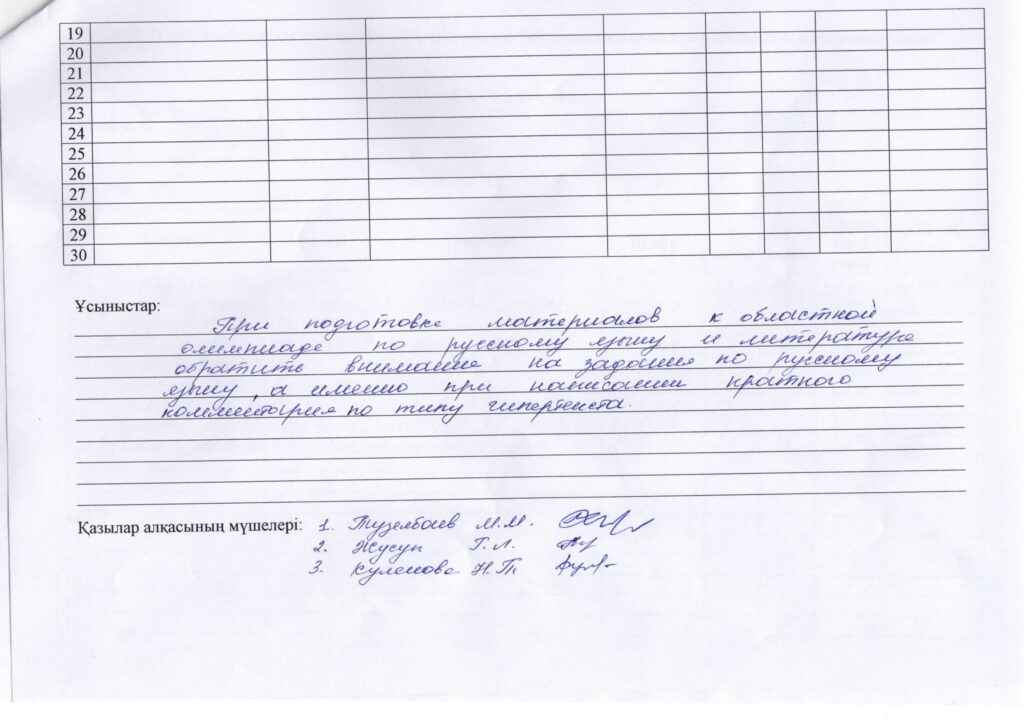 19
20
21
22
23
24
25
26
27
28
29
30
Ұсыныстар:
При подготовке материалов к областной
олимпиаде по русскому языку и литературе
обратить внимание на задание по русскому
языку, а именно при написании краткого
комментария по типу гипертекста.
Қазылар алқасының мүшелері: 1. Тузелбаев М.М.
2. Жусуп Г.Л.
3. Куленова Н.Т.